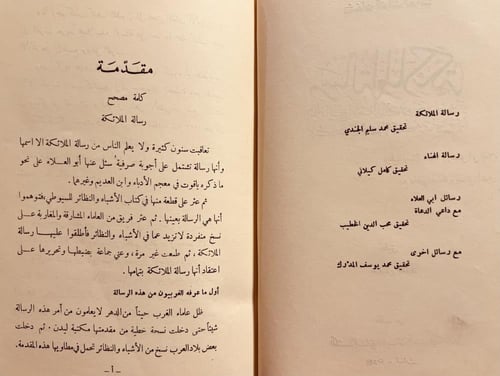 رسالة الملائكة
تحقيق محمد سليم الجندي
رسالة الهناء
تحقيق كامل كيلاني
رسائل ابي العلاء
مع داعي الدعاة
تحقيق محب الدين الخطيب
مع رسائل اخرى
تحقيق محمد يوسف المدرك
مقدمة
كلمة مصحح
رسالة الملائكة
تعاقبت سنون كثيرة ولا يعلم الناس من رسالة الملائكة الا اسمها
وأنها رسالة تشتمل على أجوبة صرفية سئل عنها أبو العلاء على نحو
ما ذكره ياقوت في معجم الأدباء وابن العديم وغيرهما .
ثم عثر على قطعة منها في كتاب الأشباه والنظائر للسيوطي فتوهموا
أنها هي الرسالة بعينها . ثم عثر فريق من العلماء المشارقة والمغاربة على
نسخ منفردة لا تزيد عما في الأشباه والنظائر فأطلقوا عليها رسالة
الملائكة ، ثم طبعت غير مرة، وعني جماعة بضبطها وتحريرها على
اعتقاد أنها رسالة الملائكة بتمامها .
أول ما عرفه الغربيون من هذه الرسالة
ظل علماء الغرب حيناً من الدهر لا يعلمون من أمر هذه الرسالة
شيئاً حتى دخلت نسخة خطية من مقدمتها مكتبة ليدن . ثم دخلت
بعض بلاد الغرب نسخ من الأشباه والنظائر تحمل في مطاويها هذه المقدمة.
-١-